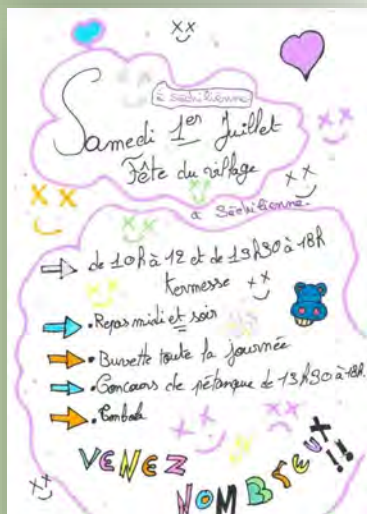 à Séchilienne
Samedi 1er Juillet
Fête du village
à Séchilienne.
de 10h à 12 et de 13h30 à 18h
Kermesse
• Repas midi et soir
• Buvette toute la journée
• Concours de pétanque de 13h30 à 18h.
• Tombola
VENEZ
NOMBREUX !!